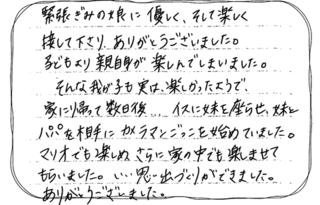 緊張ぎみの娘に優しく、そして楽しく
接して下さり、ありがとうございました。
子どもより親自身が楽しんでしまいました。
そんな我が子も実は、楽しかったようで、
家に帰って数日後… イスに妹を座らせ、妹と
パパを相手にカメラマンごっこを始めていました。
マリオでも楽しめ、さらに家の中でも楽しませて
もらいました。いい思い出づくりができました。
ありがとうございました。